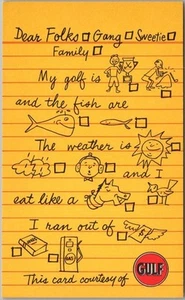 Dear Folks Gang Sweetie
Family
My golf is
and the fish are
The weather is
and I
eat like a
I ran out of
This card courtesy of GULF